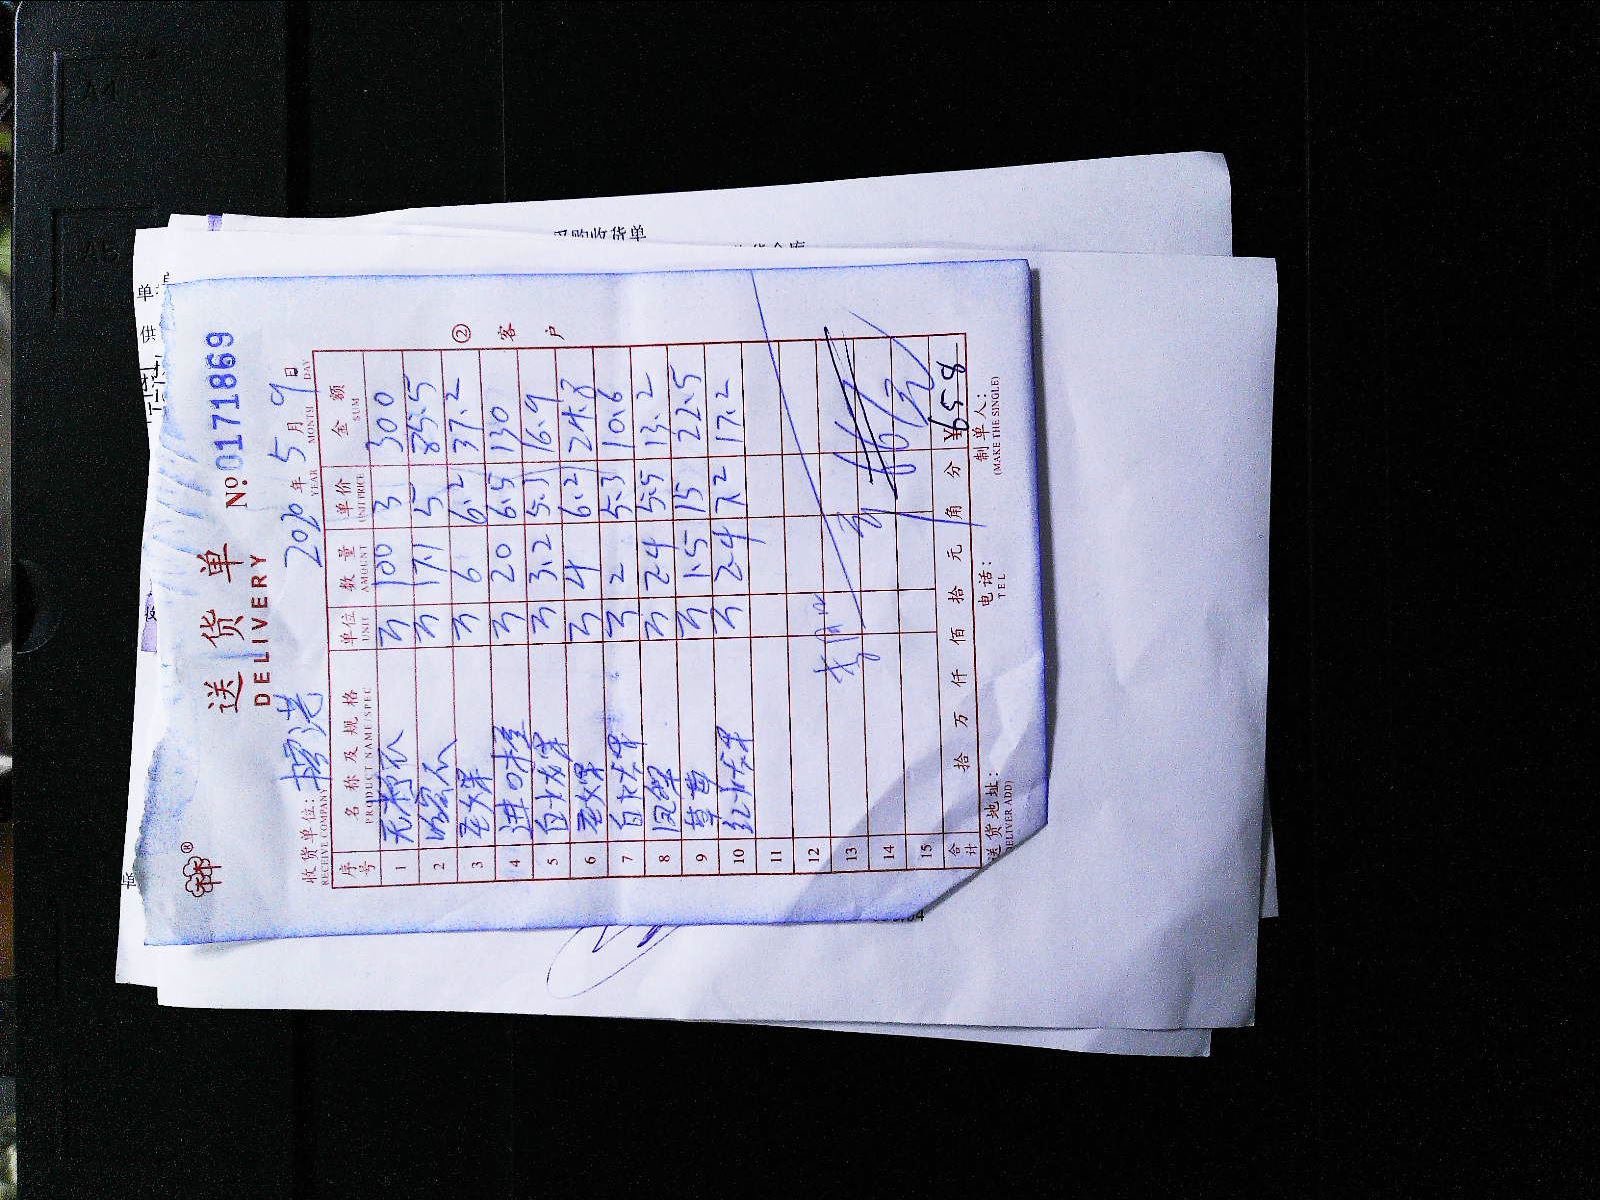 送货单
DELIVERY
No.0171869
收货单位：
RECEIVE COMPANY
2020年5月9日
YEAR MONTH DAY
序号 名称及规格 单位 数量 单价 金额
PRODUCT NAME/SPEC UNIT AMOUNT UNIT PRICE SUM
1 100 3 300
2 哈密瓜 17.1 5 85.5
3 6 6.2 37.2
4 进口橙 20 6.5 130
5 白火龙果 3.2 5.3 16.9
6 4 6.2 24.8
7 2 5.3 10.6
8 凤梨 2.4 5.5 13.2
9 草莓 1.5 15 22.5
10 2.4 7.2 17.2
11
12
13
14
15
合计 拾 万 仟 佰 拾 元 角 分 ¥658
送货地址：
DELIVER ADD)
电话：
TEL
制单人：
(MAKE THE SINGLE)
②客户
采购收货单
A4
A5